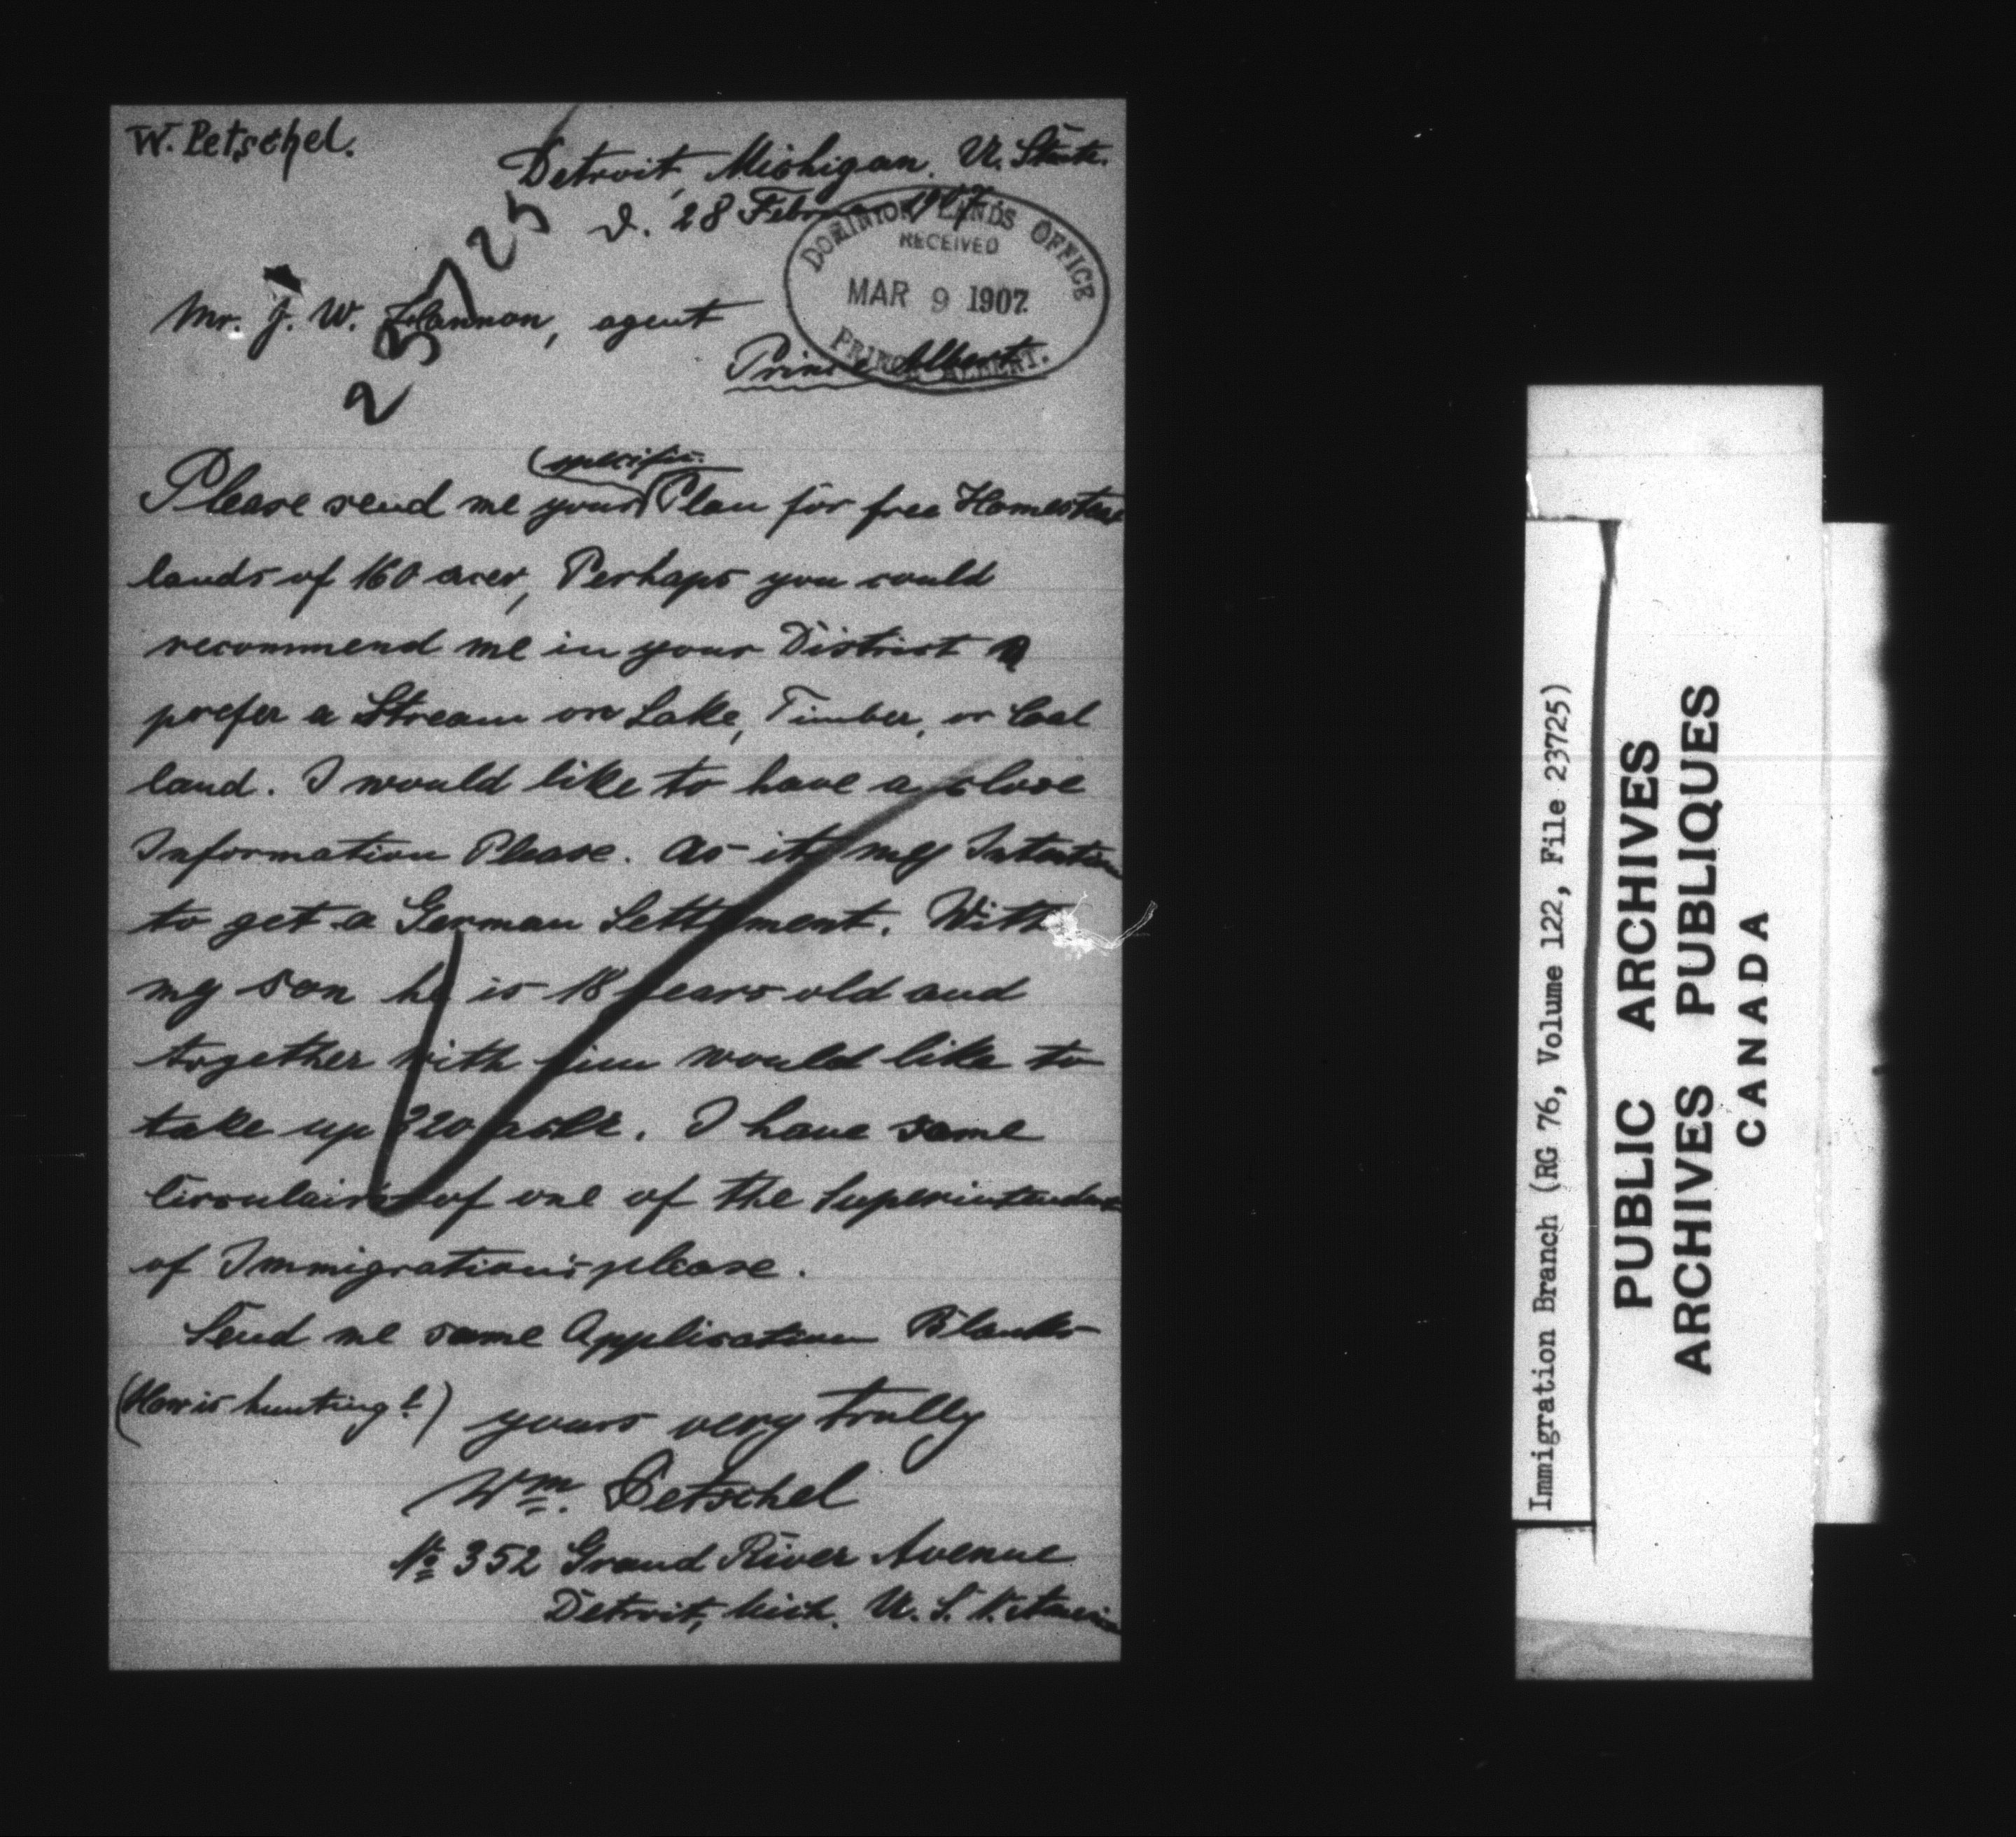 W. Petschel.
Detroit, Michigan. U. State.
d. 28 Februar 1907.
23725
DOMINION LANDS OFFICE
RECEIVED
MAR 9 1907
PRINCE ALBERT.
Mr. J. W. Hannon, agent
Prince Albert.
(specific.
Please send me your Plan for free Homestead
lands of 160 acer, Perhaps you could
recommend me in your District
prefer a Stream or Lake, Timber, or Coal
land. I would like to have a close
Information Please. As its my Intention
to get a German Settlment. With
my son he is 18 years old and
together with him would like to
take up 320 . I have some
Circulairs of one of the Superintendent
of Immigration's please.
Send me some Application Blanks
(How is hunting?) yours very trully
Wm. Petschel
No 352 Grand River Avenue
Detroit, Mich. U. S. N. America
Immigration Branch (RG 76, Volume 122, File 23725)
PUBLIC ARCHIVES
ARCHIVES PUBLIQUES
CANADA